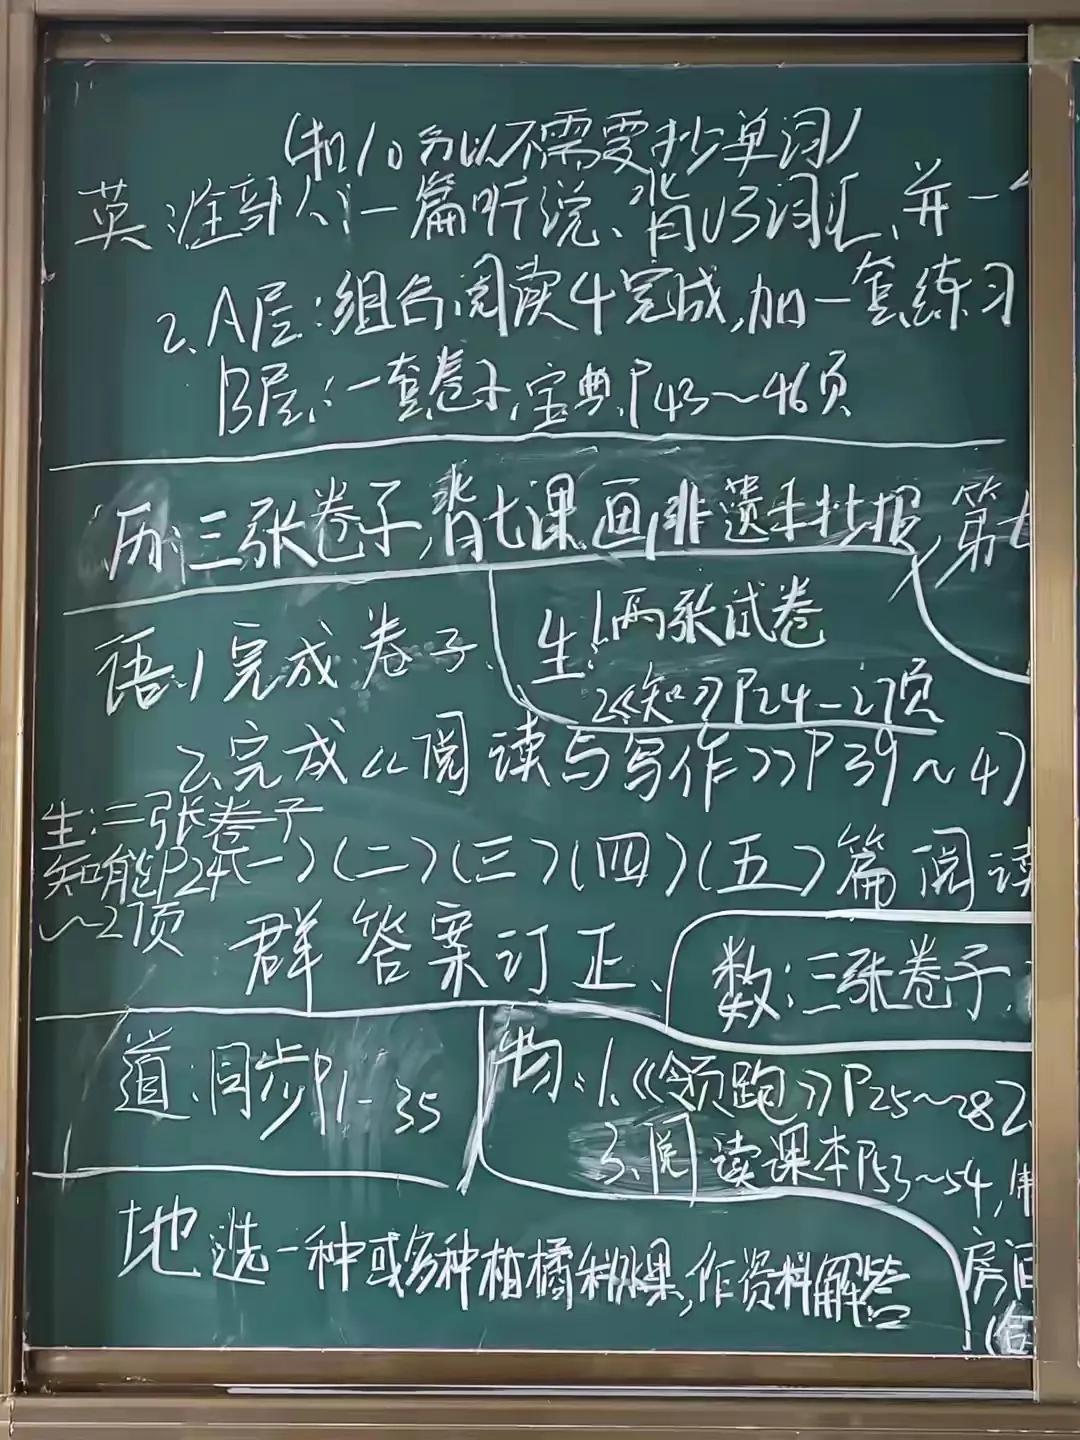 分以不需要抄单词)
英:准 一篇听说、背U3词汇,并一
2.A层:组合阅读4完成,加一套练习
B层:一套卷子,宝典P43~46页
历:三张卷子,背七课,画非遗手抄报,第七
语:1完成卷子、
生:1.两张试卷
2《知》P24-27页
2.完成《阅读与写作》P39~47
生:二张卷子
知能P24
~27页
(一)(二)(三)(四)(五)篇阅读
群答案订正、
数:三张卷子
道:同步P1-35
物:1.《领跑》P25~28 2.
3.阅读课本P53~54,
地 选一种或多种柑橘科水果,作资料解答
房间